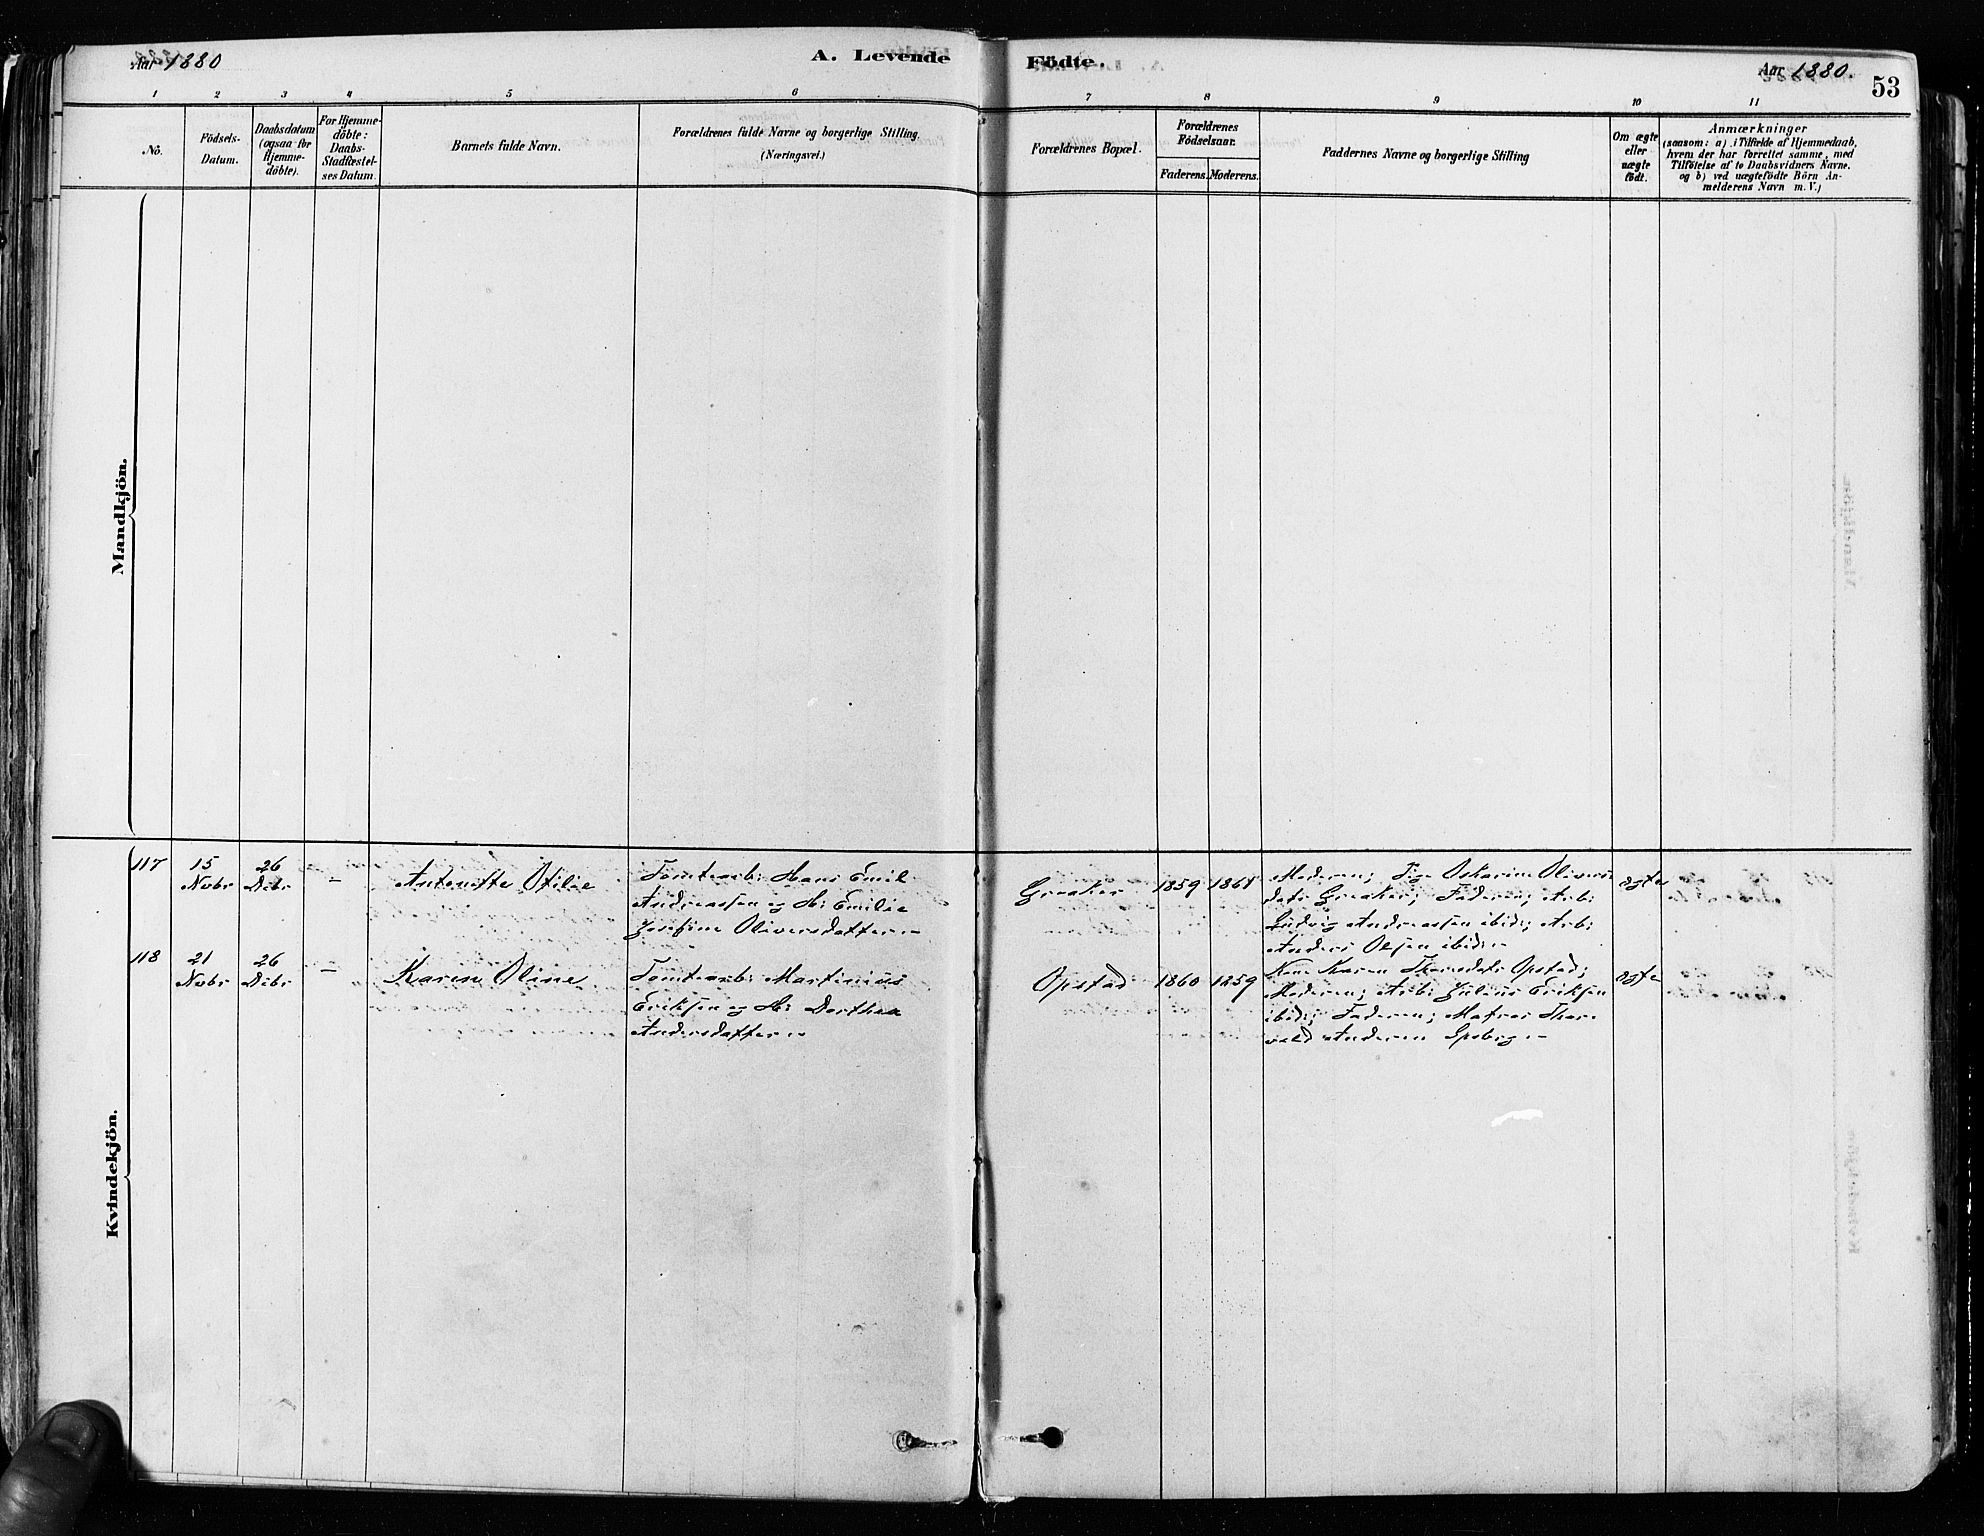 Aar 1880
A. Levende Födte.
Aar 1880.
53
1 2 3 4 5 6 7 8 9 10 11
No.
Födsels-
Datum.
Daabsdatum
(ogsaa for
Hjemme-
döbte).
For Hjemme-
döbte:
Daabs-
Stadfæstel-
ses Datum.
Barnets fulde Navn.
Forældrenes fulde Navne og borgerlige Stilling.
(Næringsvei.)
Forældrenes Bopæl.
Forældrenes
Födselsaar.
Faderens. Moderens.
Faddernes Navne og borgerlige Stilling
Om ægte
eller
uægte
födt.
Anmærkninger
(saasom: a) i Tilfælde af Hjemmedaab,
hvem der har forrettet samme, med
Tilföielse af to Daabsvidners Navne.
og b) ved uægtefödte Börn An-
melderens Navn m. V.)
Mandkjön.
Kvindekjön.
117
15
Novbr
26
Dcbr
-
Antonette Otilie
Tomtearb: Hans Emil
Andreassen og H: Emilie
Josefine Oliversdatter.-
Greaker
1859
Moderen; Pige Oskarine Olivers
datr Greaker; Faderen; Arb:
Ludvig Andreassen ibid; Arb:
Anders Olsen ibid:-
ægte
118
21
Novbr
26
Dcbr
-
Karen Oline
Tomtearb: Martinius
Eriksen og H: Dorthea
Andersdatter.-
Opstad
1860
1259
Kone Karen Opstad;
Moderen; Arb: Julius Eriksen
ibid; Faderen; Matros Thor
vald Andersen Spsbrg.-
ægte